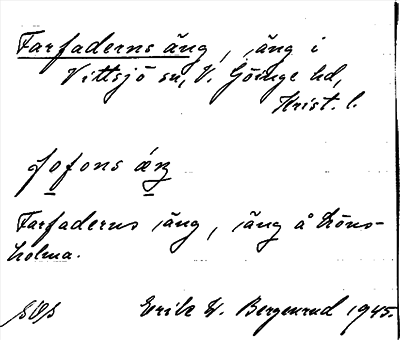 Farfaderns äng, äng i
Vittsjö sn, V. Göinge hd,
Krist. l.
fofons áŋ
Farfaderns äng, äng å Höns-
holma.
Erik W. Bergenrud 1945.